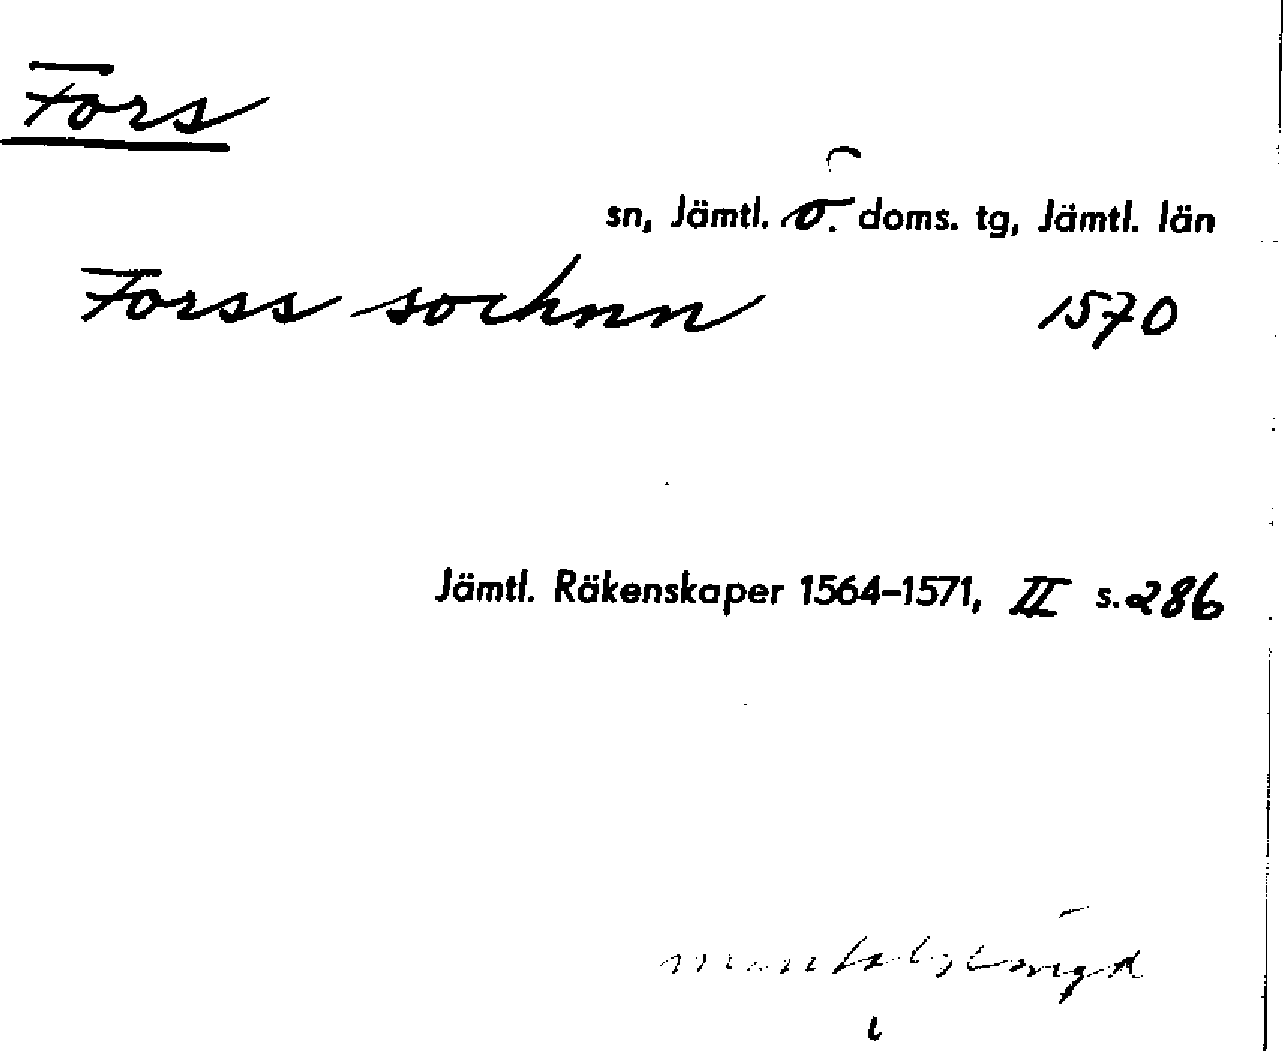 Fors
sn, Jämtl. Ö. doms. tg, Jämtl. län
Forss sochnn 1570
Jämtl. Räkenskaper 1564–1571, II s. 286